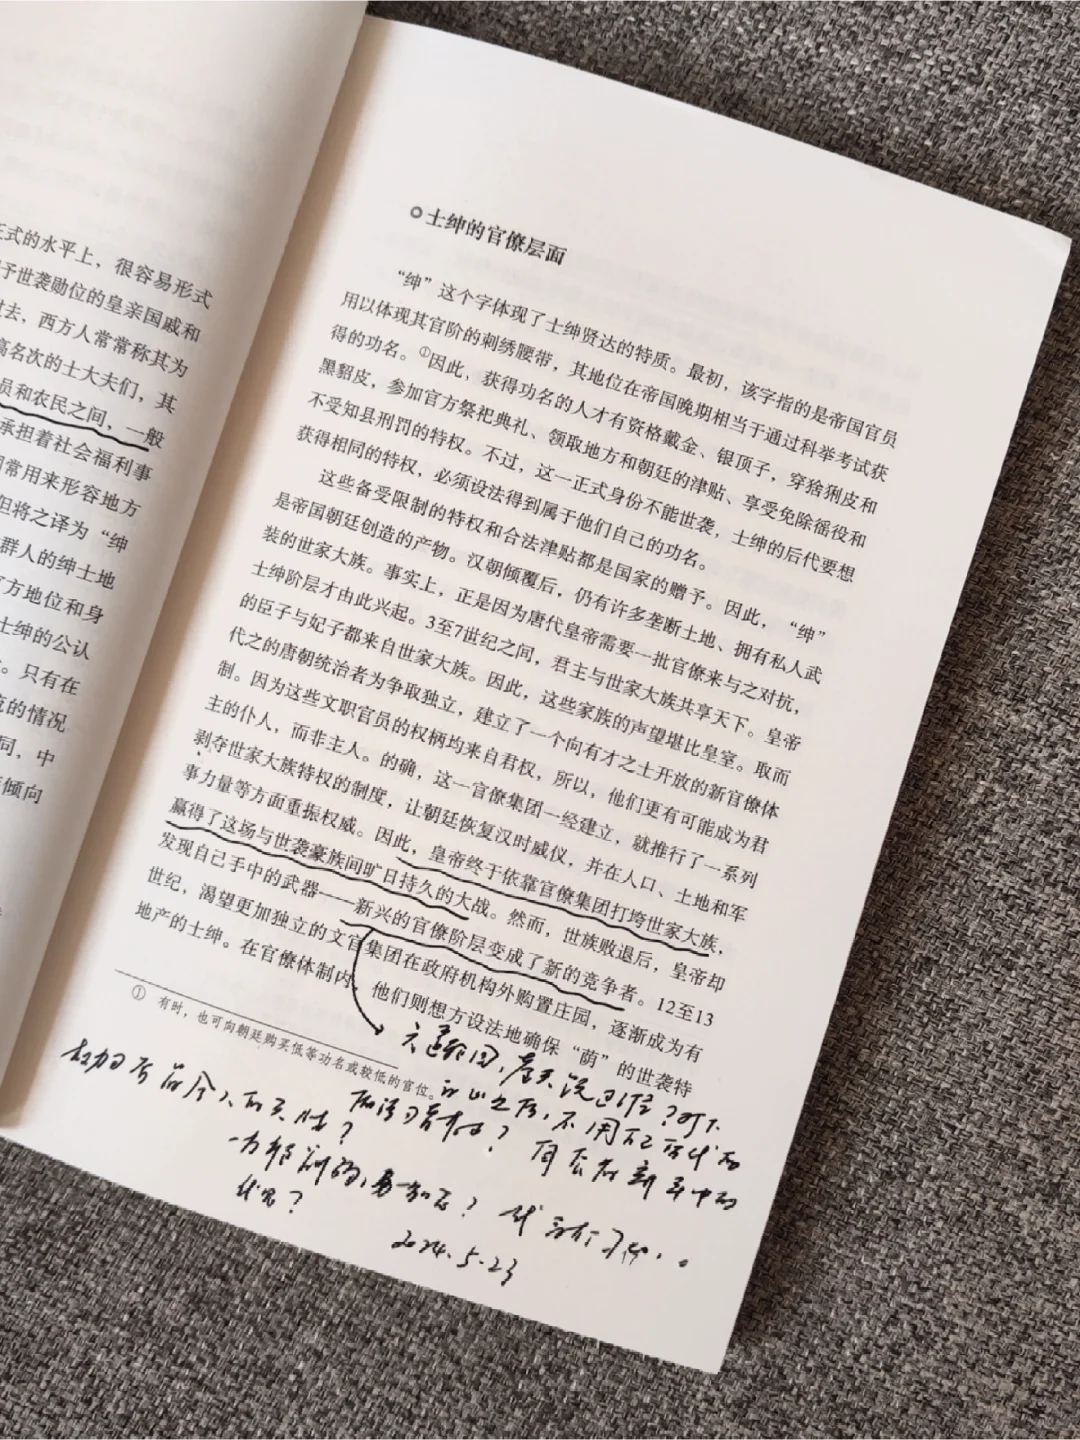 正式的水平上，很容易形式
予世袭勋位的皇亲国戚和
过去，西方人常常称其为
高名次的士大夫们，其
员和农民之间，一般
承担着社会福利事
常用来形容地方
但将之译为“绅
群人的绅士地
官方地位和身
士绅的公认
。只有在
的情况
同，中
倾向
士绅的官僚层面
“绅”这个字体现了士绅贤达的特质。最初，该字指的是帝国官员
用以体现其官阶的刺绣腰带，其地位在帝国晚期相当于通过科举考试获
得的功名。①因此，获得功名的人才有资格戴金、银顶子，穿猞猁皮和
黑貂皮，参加官方祭祀典礼、领取地方和朝廷的津贴、享受免除徭役和
不受知县刑罚的特权。不过，这一正式身份不能世袭，士绅的后代要想
获得相同的特权，必须设法得到属于他们自己的功名。
这些备受限制的特权和合法津贴都是国家的赠予。因此，“绅”
是帝国朝廷创造的产物。汉朝倾覆后，仍有许多垄断土地、拥有私人武
装的世家大族。事实上，正是因为唐代皇帝需要一批官僚来与之对抗，
士绅阶层才由此兴起。3至7世纪之间，君主与世家大族共享天下。皇帝
的臣子与妃子都来自世家大族。因此，这些家族的声望堪比皇室。取而
代之的唐朝统治者为争取独立，建立了一个向有才之士开放的新官僚体
制。因为这些文职官员的权柄均来自君权，所以，他们更有可能成为君
主的仆人，而非主人。的确，这一官僚集团一经建立，就推行了一系列
剥夺世家大族特权的制度，让朝廷恢复汉时威仪，并在人口、土地和军
事力量等方面重振权威。因此，皇帝终于依靠官僚集团打垮世家大族，
赢得了这场与世袭豪族间旷日持久的大战。然而，世族败退后，皇帝却
发现自己手中的武器——新兴的官僚阶层变成了新的竞争者。12至13
世纪，渴望更加独立的文官集团在政府机构外购置庄园，逐渐成为有
地产的士绅。在官僚体制内，他们则想方设法地确保“荫”的世袭特
① 有时，也可向朝廷购买低等功名或较低的官位。
2024.5.23